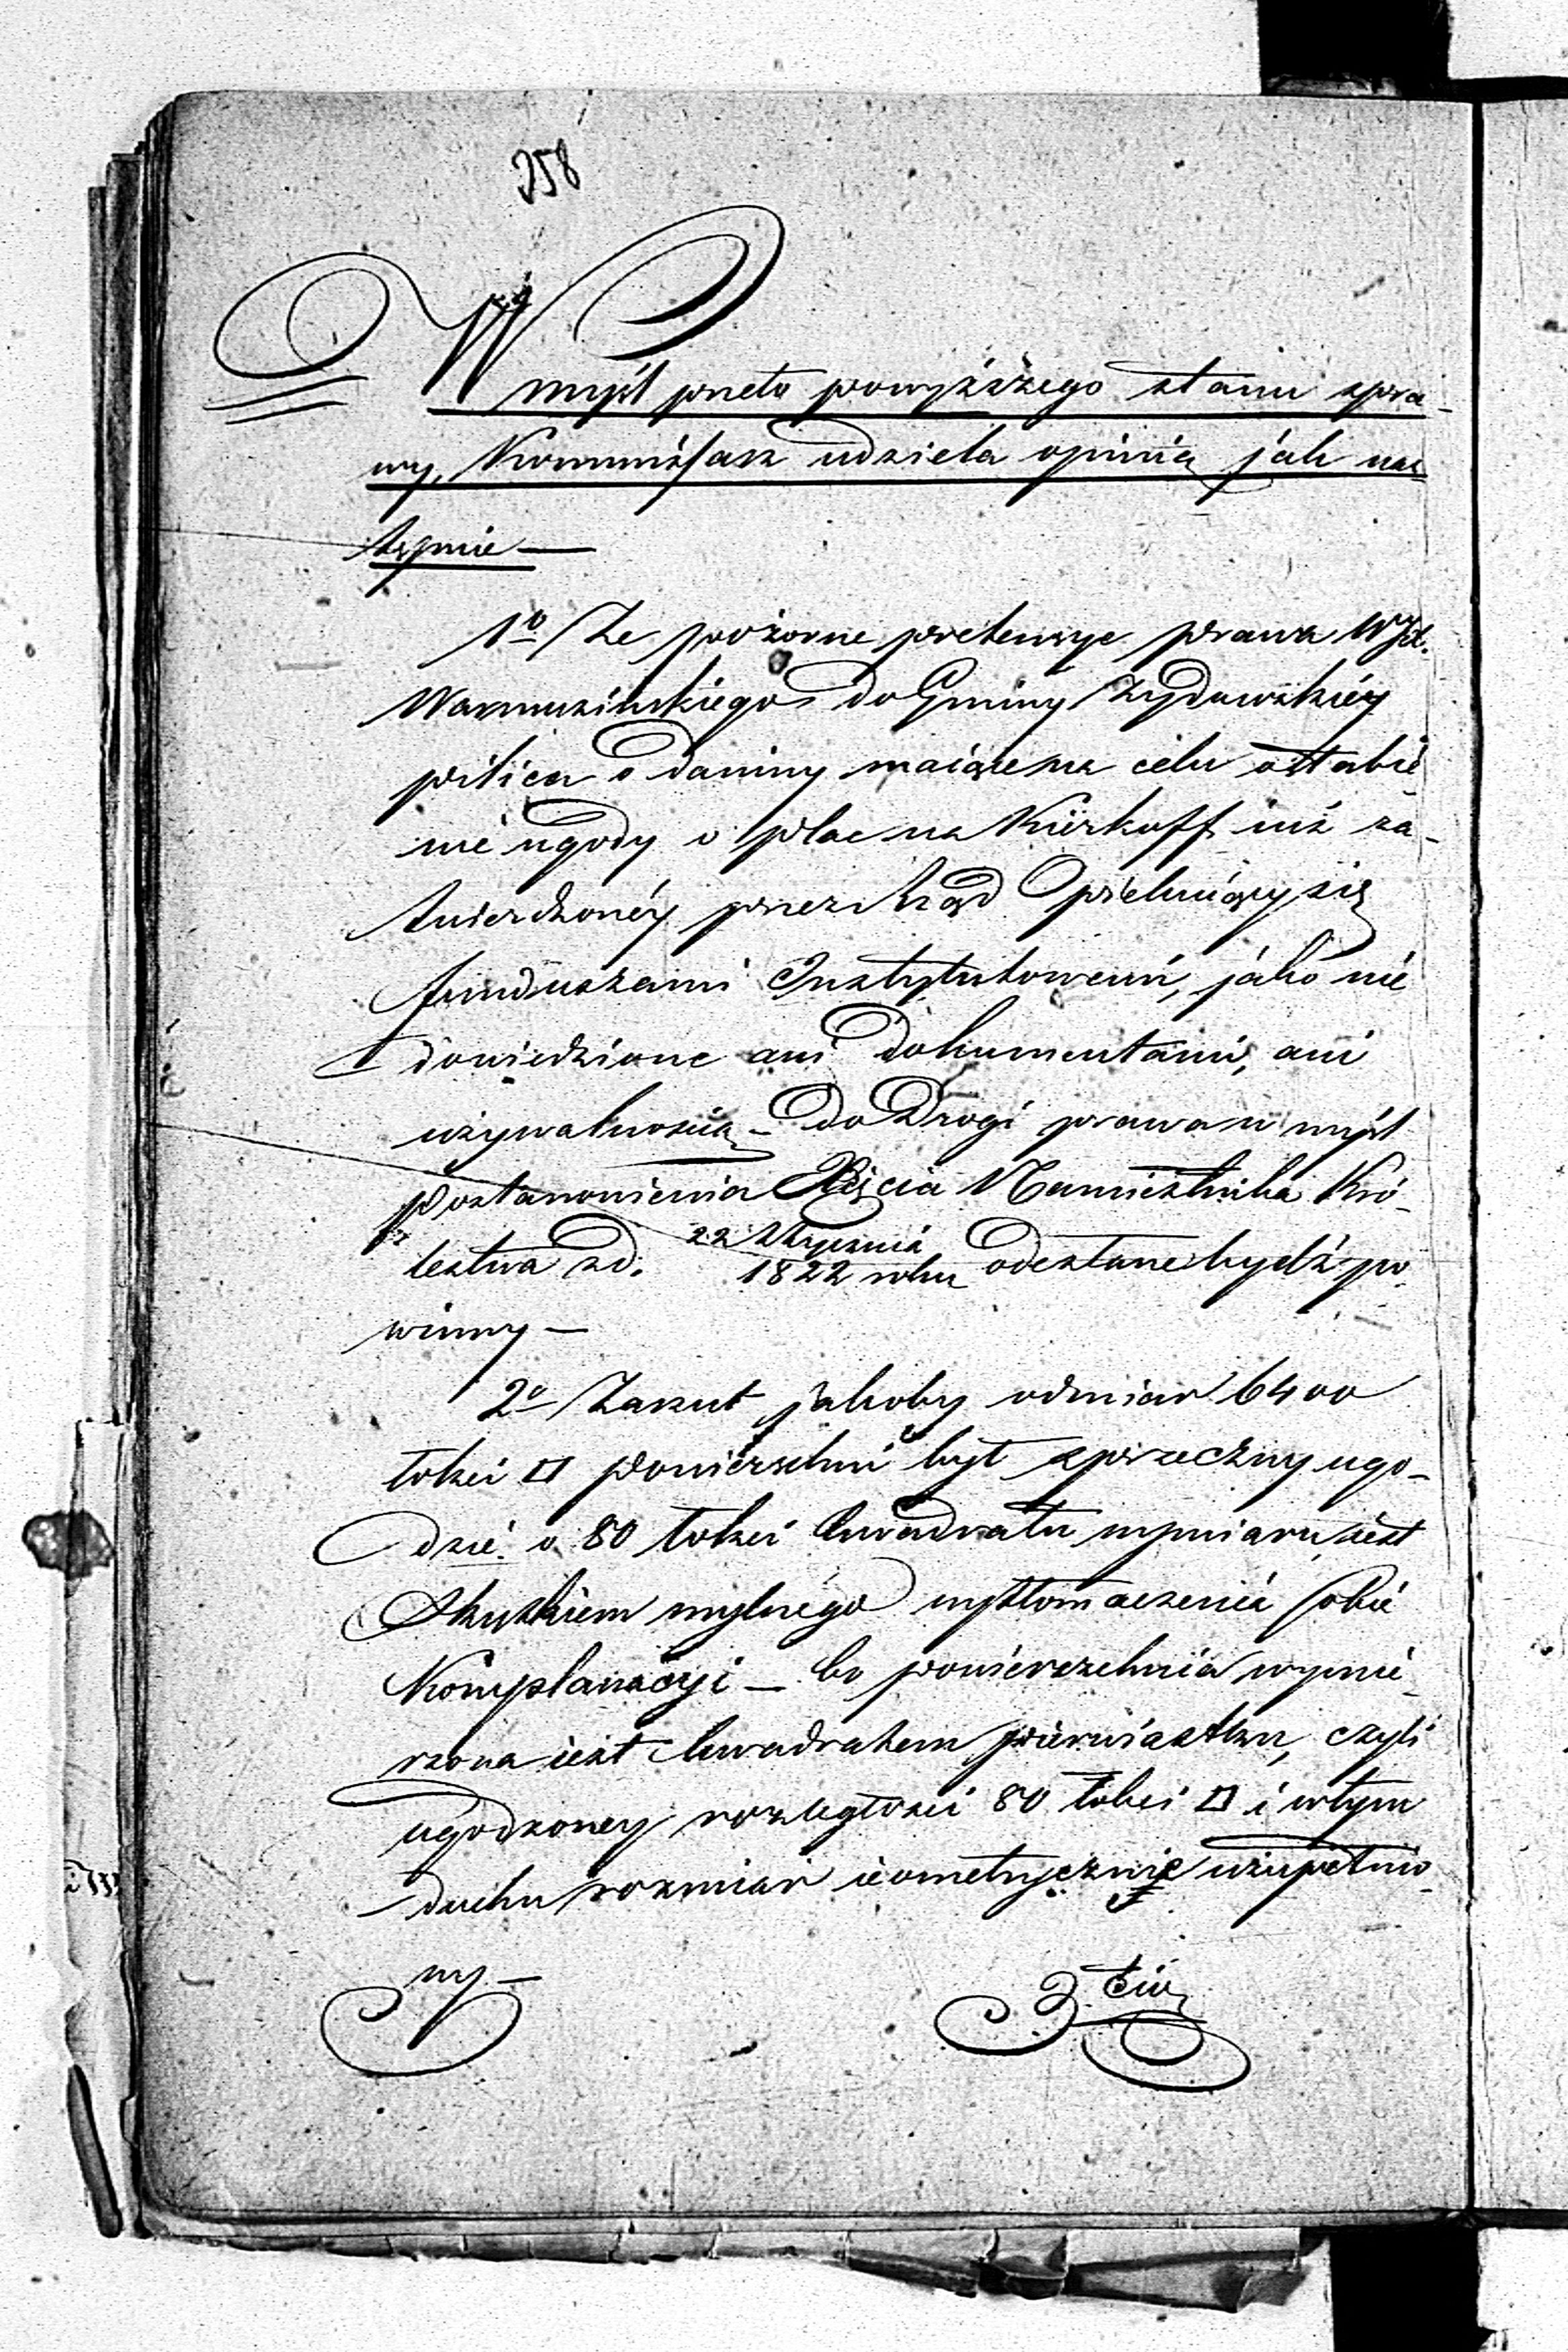 358
W myśl przeto powyższego stanu spra-
wy, Kommissarz udziela opinią jak nas-
tępnie —
1o Że pozorne pretensye prawa WJP.
Warmuzińskiego do Gminy Żydowskiéy
pilica o daniny maiące na celu osłabie
nie ugody o plac na Kierkoff iuż za-
twierdzonéy przez Rząd Opiekuiący się
funduszami Instytutowemi, jako nie
dowiedzione ani dokumentami, ani
używalnością — do Drogi prawa w myśl
Postanowienia Xięcia Namiestnika Kró-
lestwa z d. 22 Stycznia 1822 roku odesłane bydź po-
winny —
2o Zarzut jakoby odmiar 6400
łokci □ powierzchni był sprzeczny ugo-
dzie o 80 łokci kwadratu wymiaru, iest
Skutkiem mylnego wytłomaczenia sobie
Komplanacyi — bo powierzchnia wymie-
rzona iest kwadratem pierwiastku, czyli
ugodzoney rozległości 80 łokci □ i w tym
duchu rozmiar ieometrycznie uzupełnio-
ny —
3. cio